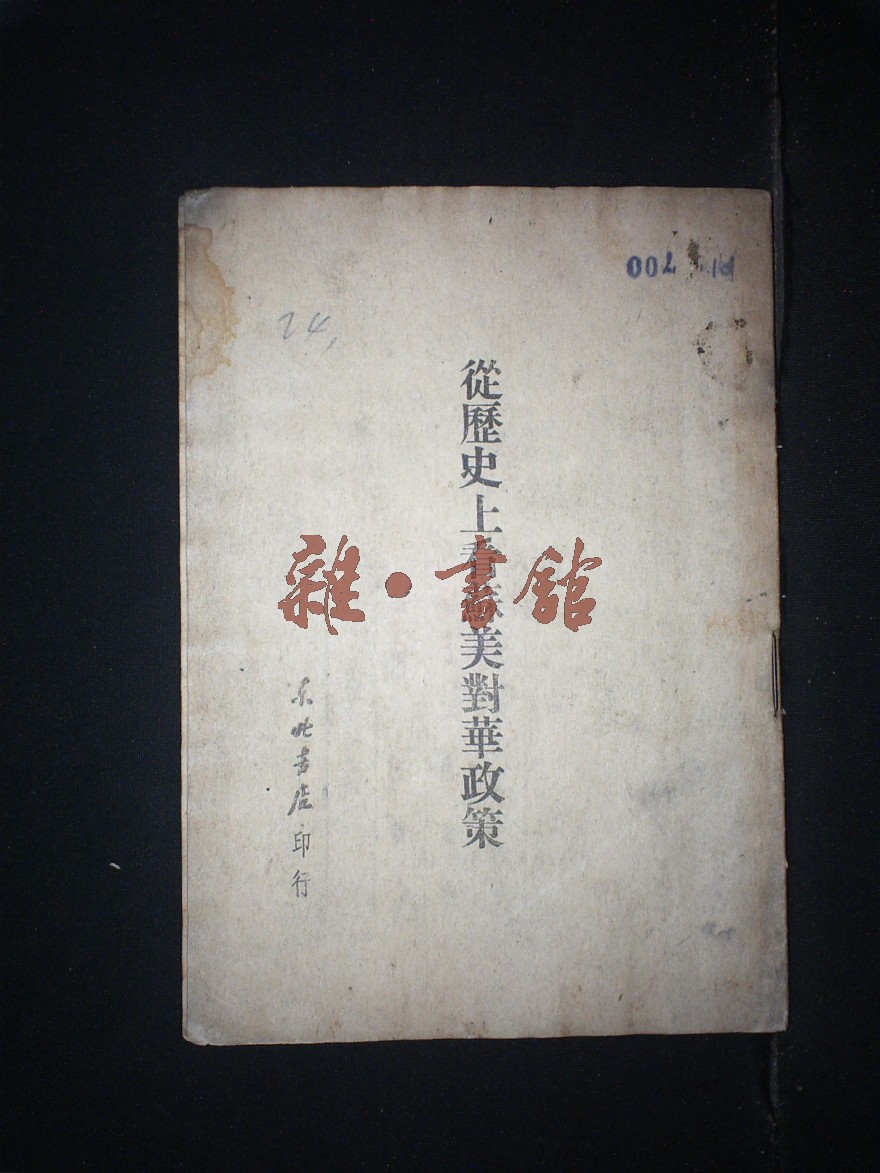 從歷史上看蘇美對華政策
东北書店印行
24
雜·書館